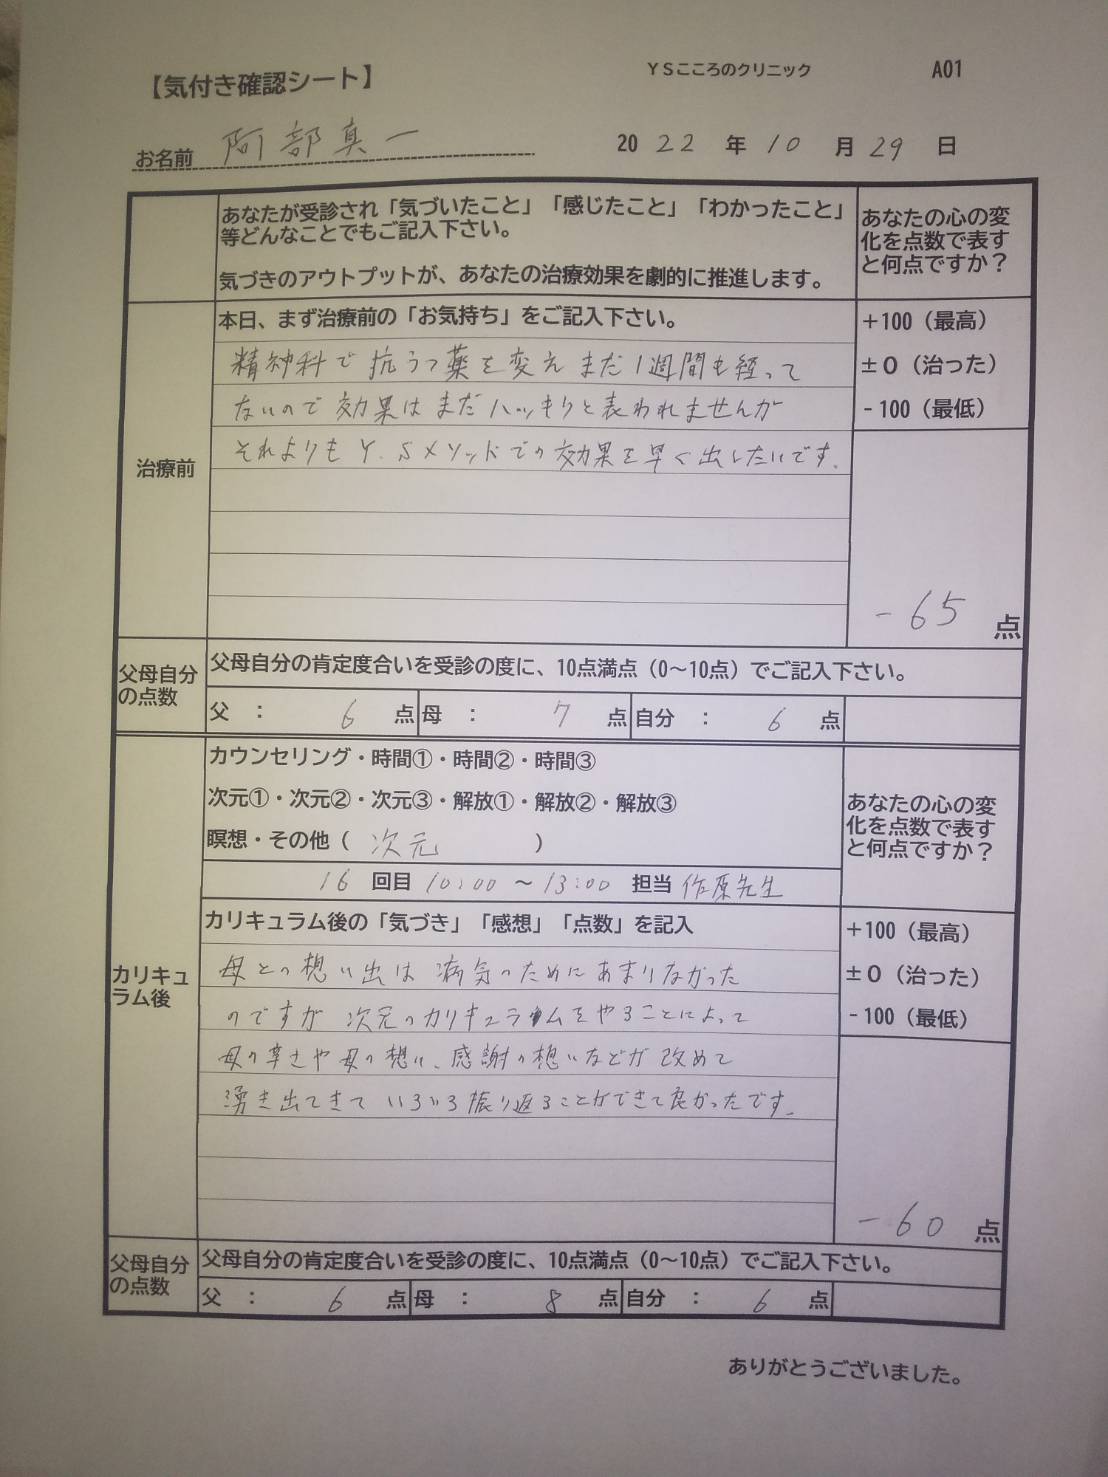 【気付き確認シート】
YSこころのクリニック
A01
お名前 阿部真一
2022年10月29日
あなたが受診され「気づいたこと」「感じたこと」「わかったこと」
等どんなことでもご記入下さい。
気づきのアウトプットが、あなたの治療効果を劇的に推進します。
あなたの心の変
化を点数で表す
と何点ですか？
治療前
本日、まず治療前の「お気持ち」をご記入下さい。
精神科で抗うつ薬を変えまだ1週間も経って
ないので効果はまだハッキリと表われませんが
それよりもY.Sメソッドでの効果を早く出したいです。
+100（最高）
±0（治った）
-100（最低）
-65 点
父母自分
の点数
父母自分の肯定度合いを受診の度に、10点満点（0～10点）でご記入下さい。
父 ： 6 点 母 ： 7 点 自分 ： 6 点
カリキュ
ラム後
カウンセリング・時間①・時間②・時間③
次元①・次元②・次元③・解放①・解放②・解放③
瞑想・その他（ 次元 ）
16 回目 10:00 ～ 13:00 担当 作原先生
あなたの心の変
化を点数で表す
と何点ですか？
カリキュラム後の「気づき」「感想」「点数」を記入
母との想い出は病気のためにあまりなかった
のですが次元のカリキュラムをやることによって
母の辛さや母の想い、感謝の想いなどが改めて
湧き出てきていろいろ振り返ることができて良かったです。
+100（最高）
±0（治った）
-100（最低）
-60 点
父母自分
の点数
父母自分の肯定度合いを受診の度に、10点満点（0～10点）でご記入下さい。
父 ： 6 点 母 ： 8 点 自分 ： 6 点
ありがとうございました。